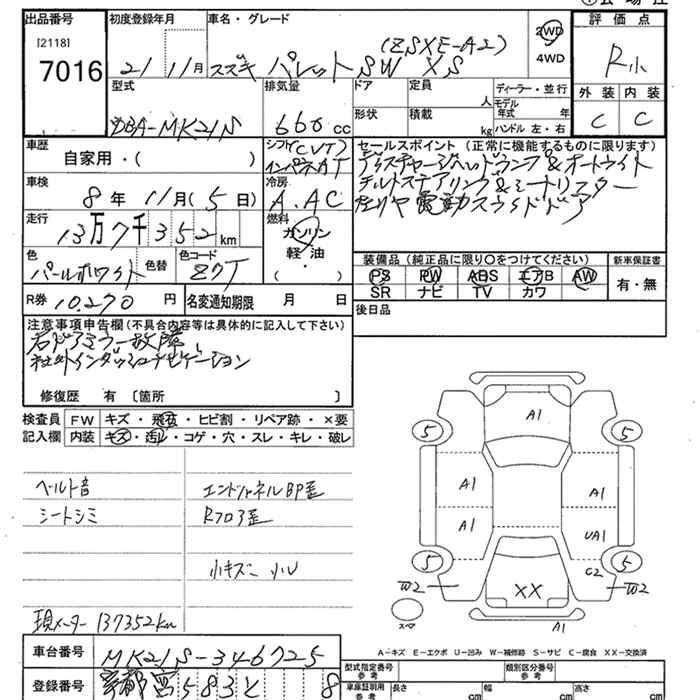 出品番号
[2118]
7016
初度登録年月
21 11月
車名・グレード
スズキ パレットSW XS
(ZSXE-A2)
2WD
4WD
評価点
R小
外装 内装
C C
型式
DBA-MK21S
排気量
660 cc
ドア
形状
定員
人
積載
kg
ディーラー・並行
モデル年式 年
ハンドル 左・右
車歴
自家用・( )
シフト(CVT)
インパネAT
セールスポイント (正常に機能するものに限ります)
ディスチャージヘッドランプ&オートライト
チルトステアリング&シートリフター
左リヤ電動スライドドア
車検
8年 11月(5日)
冷房
A.AC
走行
13万7千352km
燃料
ガソリン
軽油
( )
色
パールホワイト
色替
色コード
Z7T
装備品 (純正品に限り○をつけてください)
PS PW ABS エアB AW
SR ナビ TV カワ
新車保証書
有・無
R券 10.270 円
名変通知期限 月 日
後日品
注意事項申告欄(不具合内容等は具体的に記入して下さい)
右ドアミラー故障
社外インダッシュナビゲーション
修復歴 有 〔箇所 〕
検査員
記入欄
FW キズ・飛石・ヒビ割・リペア跡・×要
内装 キズ・汚レ・コゲ・穴・スレ・キレ・破レ
ベルト音
シートシミ
エンドパネルBP歪
Rフロア歪
小キズ 小U
現メーター 137352km
A1
5 5
A1 A1
A1 UA1
C2
5 5
W2 XX W2
スペア
A1
A-キズ E-エクボ U-凹み W-補修跡 S-サビ C-腐食 XX-交換済
車台番号
MK21S-346725
登録番号
宇都宮583と 8
型式指定番号
参考
類別区分番号
参考
車庫証明用
参考
長さ cm
幅 cm
高さ cm